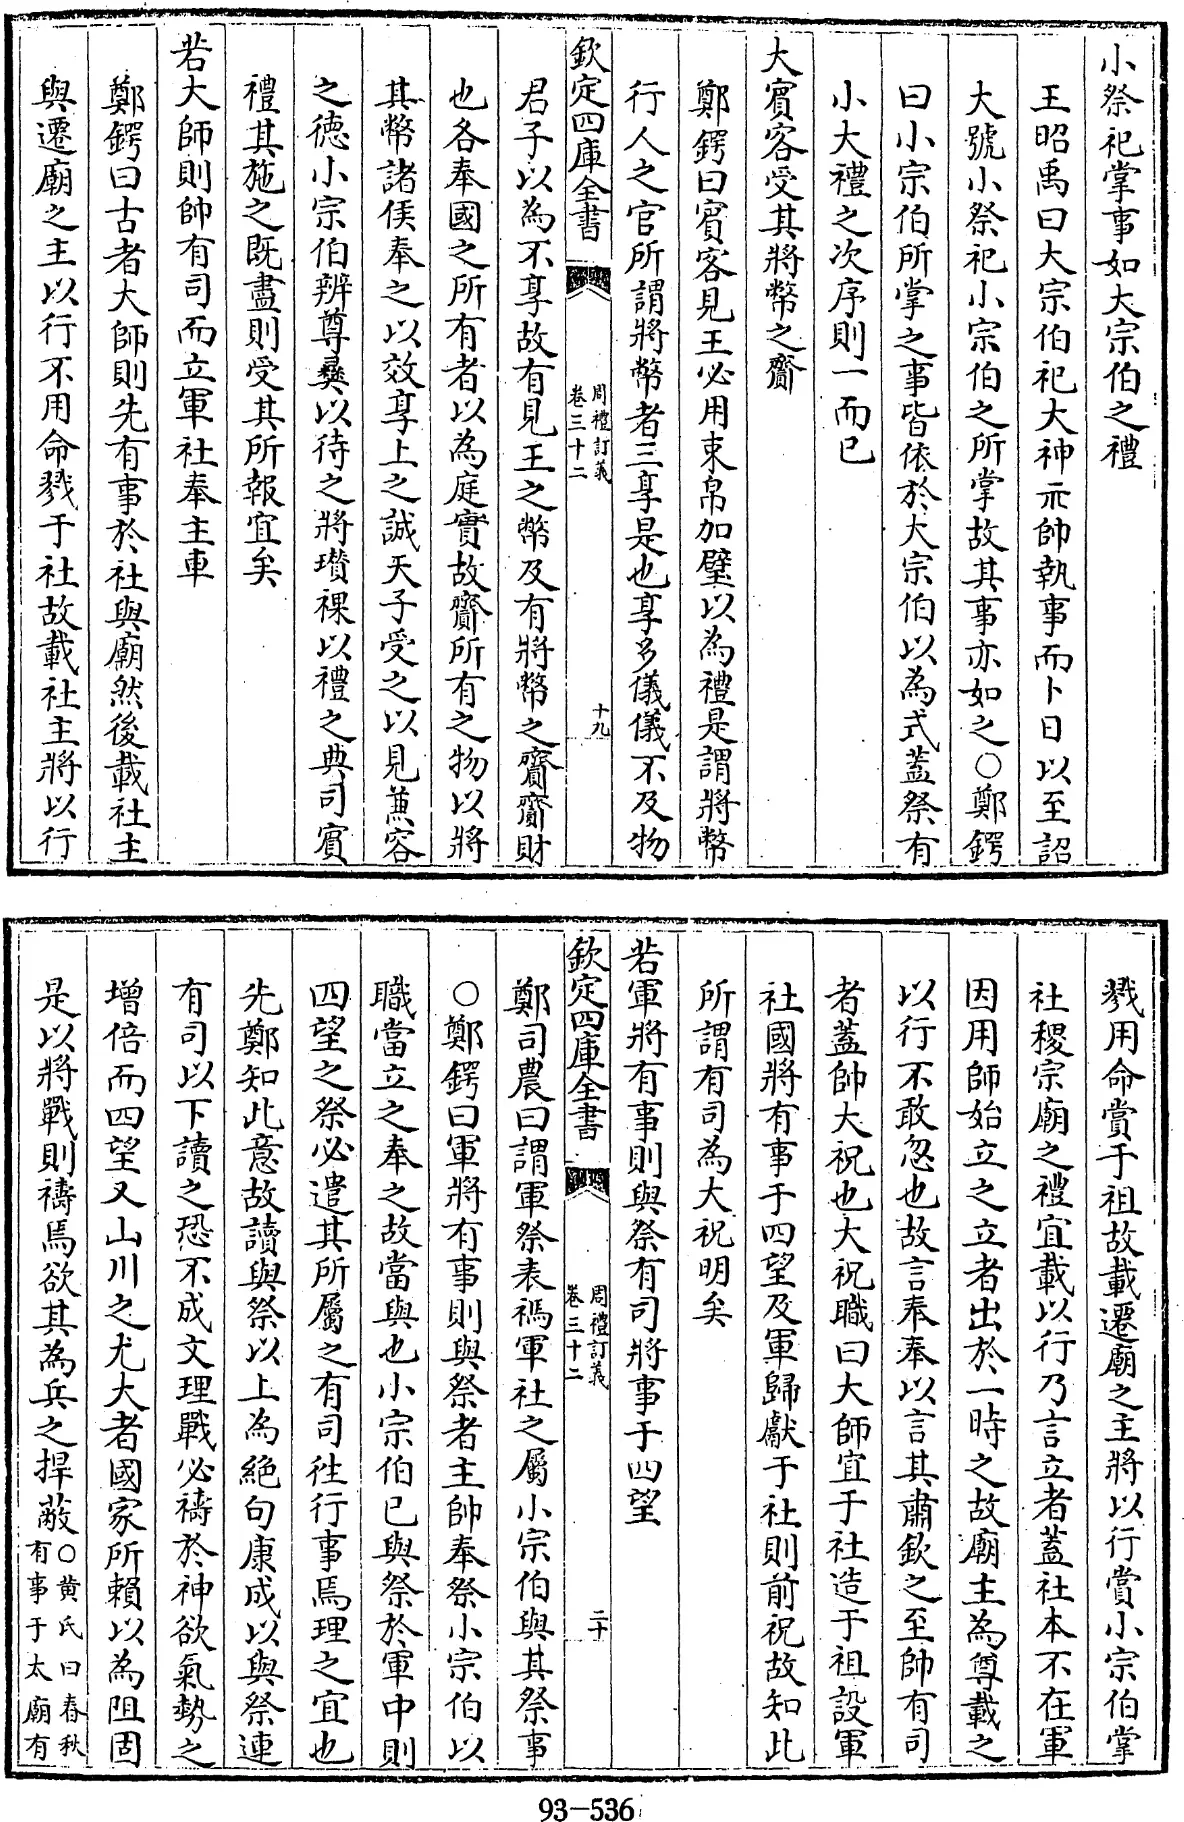 小祭祀掌事如大宗伯之禮
王昭禹曰大宗伯祀大神示帥執事而卜日以至詔
大號小祭祀小宗伯之所掌故其事亦如之○鄭鍔
曰小宗伯所掌之事皆依於大宗伯以為式蓋祭有
小大禮之次序則一而已
大賓客受其將幣之齎
鄭鍔曰賓客見王必用束帛加璧以為禮是謂將幣
行人之官所謂將幣者三享是也享多儀儀不及物
欽定四庫全書
周禮訂義
卷三十二
十九
君子以為不享故有見王之幣及有將幣之齎齎財
也各奉國之所有者以為庭實故齎所有之物以將
其幣諸侯奉之以效享上之誠天子受之以見蕙容
之德小宗伯辨尊彝以待之將瓚祼以禮之典司賓
禮其施之既盡則受其所報宜矣
若大師則帥有司而立軍社奉主車
鄭鍔曰古者大師則先有事於社與廟然後載社主
與遷廟之主以行不用命戮于社故載社主將以行
戮用命賞于祖故載遷廟之主將以行賞小宗伯掌
社稷宗廟之禮宜載以行乃言立者蓋社本不在軍
因用師始立之立者出於一時之故廟主為尊載之
以行不敢忽也故言奉奉以言其肅欽之至帥有司
者蓋帥大祝也大祝職曰大師宜于社造于祖設軍
社國將有事于四望及軍歸獻于社則前祝故知此
所謂有司為大祝明矣
若軍將有事則與祭有司將事于四望
欽定四庫全書
周禮訂義
卷三十二
二十
鄭司農曰謂軍祭表禡軍社之屬小宗伯與其祭事
○鄭鍔曰軍將有事則與祭者主帥奉祭小宗伯以
職當立之奉之故當與也小宗伯已與祭於軍中則
四望之祭必遣其所屬之有司徃行事焉理之宜也
先鄭知此意故讀與祭以上為絕句康成以與祭連
有司以下讀之恐不成文理戰必禱於神欲氣勢之
增倍而四望又山川之尤大者國家所賴以為阻固
是以將戰則禱焉欲其為兵之捍蔽○黄氏曰春秋
有事于太廟有
93-536